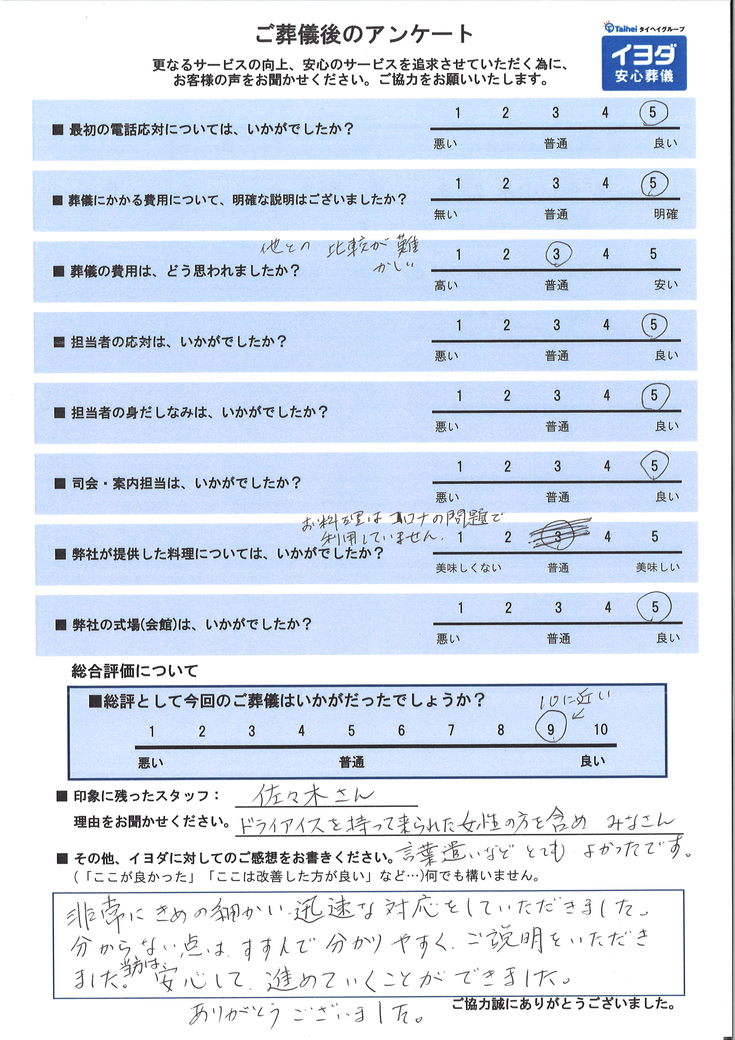 ご葬儀後のアンケート
Taihei タイヘイグループ
イヨダ
安心葬儀
更なるサービスの向上、安心のサービスを追求させていただく為に、
お客様の声をお聞かせください。ご協力をお願いいたします。
■ 最初の電話応対については、いかがでしたか？
1 2 3 4 5
悪い 普通 良い
■ 葬儀にかかる費用について、明確な説明はございましたか？
1 2 3 4 5
無い 普通 明確
他との 比較が難
かしい
■ 葬儀の費用は、どう思われましたか？
1 2 3 4 5
高い 普通 安い
■ 担当者の応対は、いかがでしたか？
1 2 3 4 5
悪い 普通 良い
■ 担当者の身だしなみは、いかがでしたか？
1 2 3 4 5
悪い 普通 良い
■ 司会・案内担当は、いかがでしたか？
1 2 3 4 5
悪い 普通 良い
お料理は コロナの問題で
利用していません.
■ 弊社が提供した料理については、いかがでしたか？
1 2 3 4 5
美味しくない 普通 美味しい
■ 弊社の式場(会館)は、いかがでしたか？
1 2 3 4 5
悪い 普通 良い
総合評価について
■総評として今回のご葬儀はいかがだったでしょうか？
10に近い
1 2 3 4 5 6 7 8 9 10
悪い 普通 良い
■ 印象に残ったスタッフ： 佐々木さん
理由をお聞かせください。ドライアイスを持って来られた女性の方を含め みなさん
言葉遣いなど とても よかったです。
■ その他、イヨダに対してのご感想をお書きください。
(「ここが良かった」「ここは改善した方が良い」など…)何でも構いません。
非常にきめの細かい、迅速な対応をしていただきました。
分からない点は、すすんで分かりやすく、ご説明をいただき
ました。当方は、安心して、進めていくことができました。
ありがとうございました。
ご協力誠にありがとうございました。